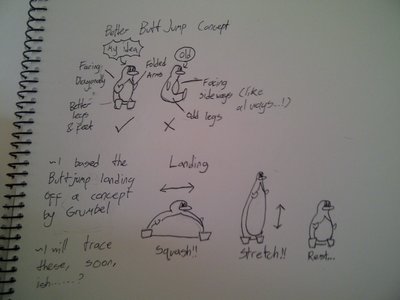 Better Butt Jump Concept
My idea
Old
Facing
Diagonally
Folded
Arms
Facing
sideways (like
always...!)
Better
legs
& feet
Odd legs
~I based the
Buttjump landing
off a concept
by Grumbel
Landing
Squash!!
Stretch!!
Rest...
~I will trace
these, soon,
ish.......?